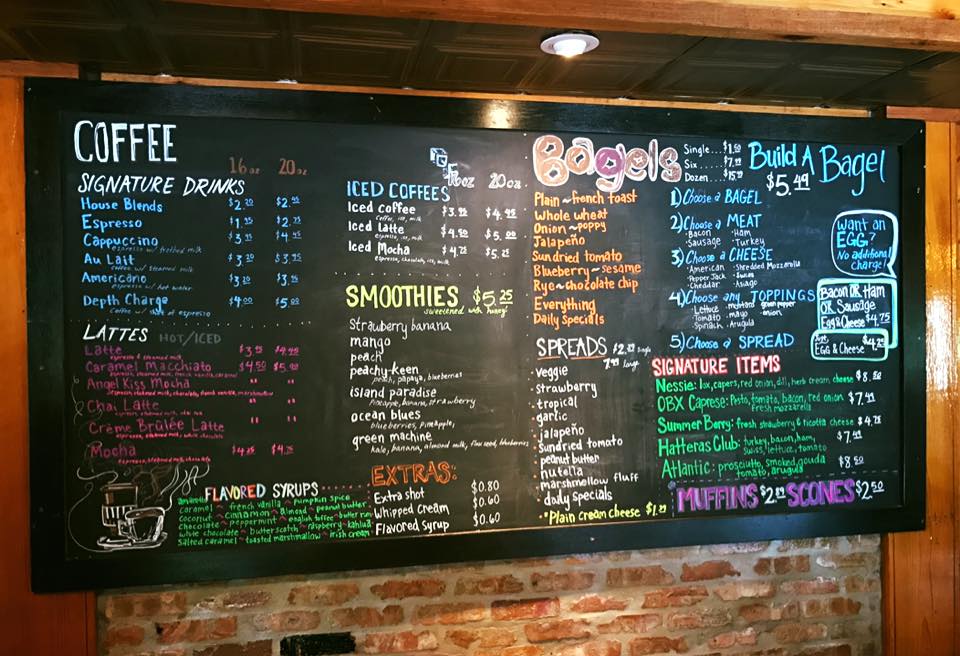 COFFEE
16 oz 20 oz
SIGNATURE DRINKS
House Blends
Espresso
Cappuccino
espresso w/ frothed milk
Au Lait
coffee w/ steamed milk
Americano
espresso w/ hot water
Depth Charge $4.00 $5.00
Coffee w/ shot of espresso
LATTES HOT/ICED
Latte
espresso & steamed milk
Caramel Macchiato
Angel Kiss Mocha " "
Chai Latte " "
Crème Brûlée Latte " "
Mocha
espresso, steamed milk, chocolate
FLAVORED SYRUPS
amaretto pumpkin spice
caramel french vanilla peanut butter
coconut cinnamon almond
chocolate peppermint english toffee butter rum
white chocolate butterscotch raspberry kahlua
Salted caramel toasted marshmallow irish cream
16 oz 20 oz
ICED COFFEES
Iced coffee
coffee, ice, milk
Iced Latte
espresso, ice, milk
Iced Mocha
espresso, chocolate, ice, milk
SMOOTHIES $5.25
sweetened with honey!
Strawberry banana
mango
peach
peachy-keen
peach, papaya, blueberries
island paradise
pineapple, banana, strawberry
ocean blues
blueberries, pineapple,
green machine
kale, banana, almond milk, flax seed, blueberries
EXTRAS:
Extra shot $0.80
Whipped Cream $0.60
Flavored Syrup $0.60
Bagels
Single...
Six....
Dozen....
Plain ~ french toast
Whole wheat
Onion ~ poppy
Jalapeño
Sundried tomato
Blueberry ~ sesame
Rye ~ chocolate chip
Everything
Daily Specials
SPREADS
veggie
strawberry
tropical
garlic
jalapeño
sundried tomato
peanut butter
nutella
marshmallow fluff
daily specials
*Plain cream cheese
Build A Bagel
$5.49
1) Choose a BAGEL
2) Choose a MEAT
Bacon Ham
Sausage Turkey
3) Choose a CHEESE
American Shredded Mozzarella
Pepper Jack Swiss
Cheddar Asiago
4) Choose any TOPPINGS
Lettuce green pepper
Tomato mayo onion
Spinach Arugula
5) Choose a SPREAD
Want an
EGG?
No additional
charge!
Bacon OR Ham
OR Sausage
Egg & Cheese $4.75
Just
EGG & Cheese
SIGNATURE ITEMS
Nessie: lox, capers, red onion, dill, herb cream cheese
OBX Caprese: Pesto, tomato, bacon, red onion
Fresh mozzarella
Summer Berry: fresh strawberry & ricotta cheese $4.75
Hatteras Club: turkey, bacon, ham,
swiss, lettuce, tomato
Atlantic: prosciutto, smoked gouda $8.50
tomato, arugula
MUFFINS SCONES $2.50